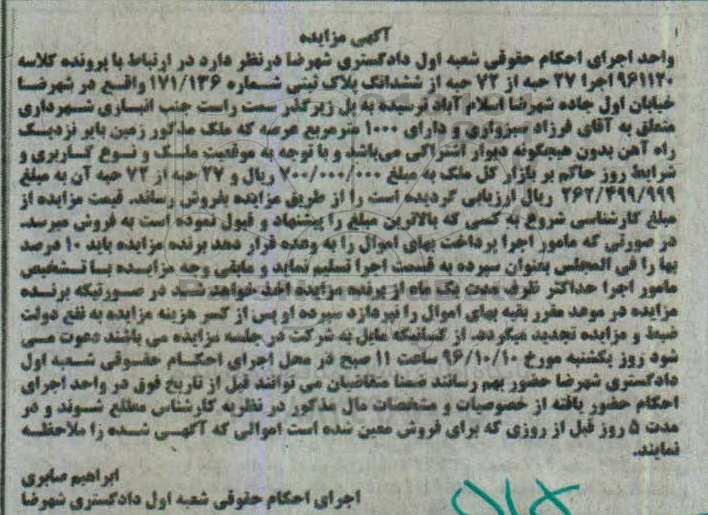 آگهی مزایده
واحد اجرای احکام حقوقی شعبه اول دادگستری شهرضا درنظر دارد در ارتباط با پرونده کلاسه
۹۶۱۱۲۰ اجرا ۲۷ حبه از ۷۲ حبه از ششدانگ پلاک ثبتی شماره ۱۷۱/۱۳۶ واقع در شهرضا
خیابان اول جاده شهرضا اسلام آباد نرسیده به پل زیرگذر سمت راست جنب انباری شهرداری
متعلق به آقای فرزاد سبزواری و دارای ۱۰۰۰ مترمربع عرصه که ملک مذکور زمین بایر نزدیک
راه آهن بدون هیچگونه دیوار اشتراکی می‌باشد و با توجه به موقعیت ملک و نوع کاربری و
شرایط روز حاکم بر بازار کل ملک به مبلغ ۷۰۰/۰۰۰/۰۰۰ ریال و ۲۷ حبه از ۷۲ حبه آن به مبلغ
۲۶۲/۴۹۹/۹۹۹ ریال ارزیابی گردیده است را از طریق مزایده بفروش رساند. قیمت مزایده از
مبلغ کارشناسی شروع به کسی که بالاترین مبلغ را پیشنهاد و قبول نموده است به فروش میرسد.
در صورتی که مامور اجرا پرداخت بهای اموال را به وعده قرار دهد برنده مزایده باید ۱۰ درصد
بها را فی المجلس بعنوان سپرده به قسمت اجرا تسلیم نماید و مابقی وجه مزایده با تشخیص
مامور اجرا حداکثر ظرف مدت یک ماه از برنده مزایده اخذ خواهد شد در صورتیکه برنده
مزایده در موعد مقرر بقیه بهای اموال را نپردازد سپرده او پس از کسر هزینه مزایده به نفع دولت
ضبط و مزایده تجدید میگردد. از کسانیکه مایل به شرکت در جلسه مزایده می باشند دعوت می
شود روز یکشنبه مورخ ۹۶/۱۰/۱۰ ساعت ۱۱ صبح در محل اجرای احکام حقوقی شعبه اول
دادگستری شهرضا حضور بهم رسانند ضمنا متقاضیان می توانند قبل از تاریخ فوق در واحد اجرای
احکام حضور یافته از خصوصیات و مشخصات مال مذکور در نظریه کارشناس مطلع شوند و در
مدت ۵ روز قبل از روزی که برای فروش معین شده است اموالی که آگهی شده را ملاحظه
نمایند.
ابراهیم صابری
اجرای احکام حقوقی شعبه اول دادگستری شهرضا